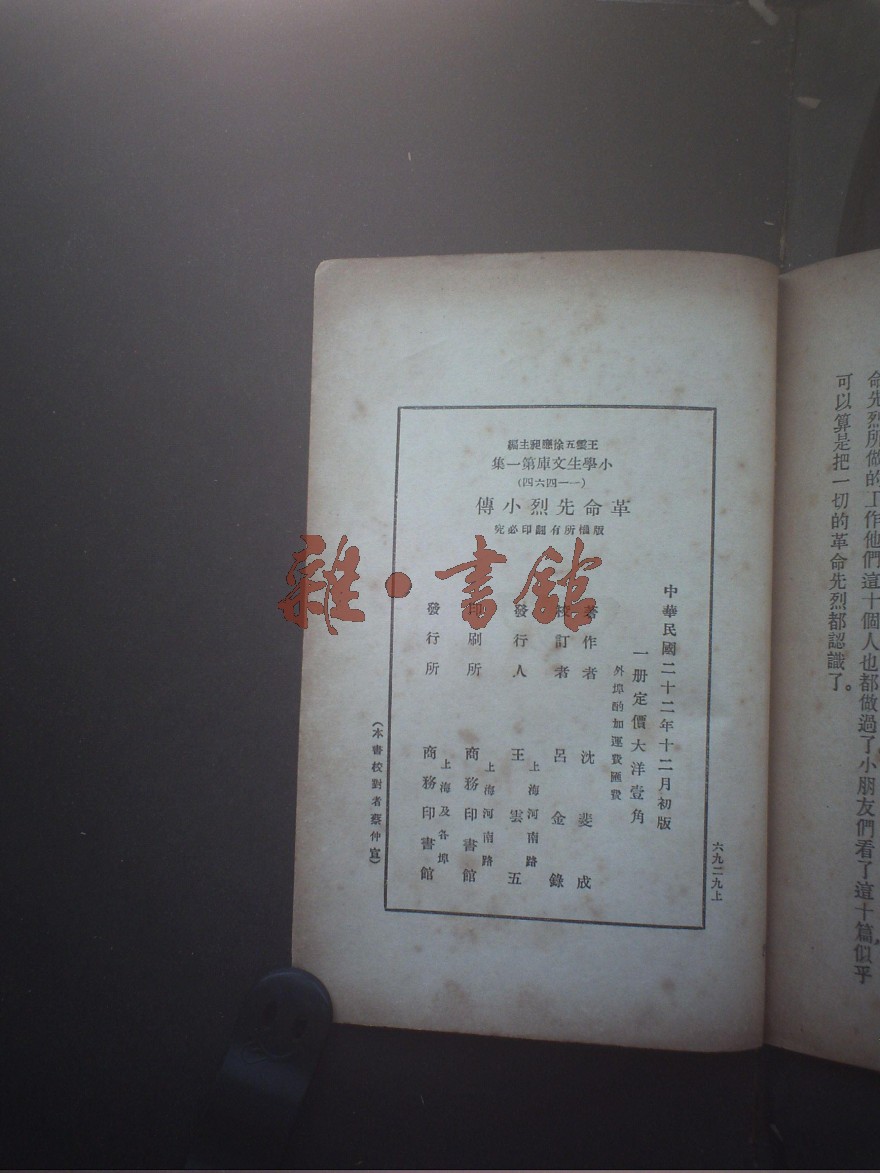 命先烈所做的工作他們這十個人也都做過了小朋友們看了這十篇，似乎
可以算是把一切的革命先烈都認識了。
編主昶應徐五雲王
集一第庫文生學小
(四六四一一)
傳小烈先命革
究必印翻有所權版
中華民國二十二年十二月初版
一册定價大洋壹角
外埠酌加運費匯費
著作者 沈斐成
校訂者 呂金錄
發行人 上海河南路 王雲五
印刷所 上海河南路 商務印書館
發行所 上海及各埠 商務印書館
(本書校對者蔡仲宣)
六九二九上
雜·書館